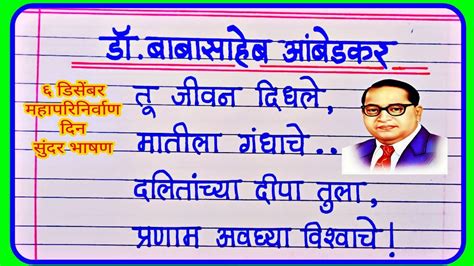 डॉ. बाबासाहेब आंबेडकर
६ डिसेंबर
महापरिनिर्वाण
दिन
सुंदर भाषण
तू जीवन दिधले,
मातीला गंधाचे..
दलितांच्या दीपा तुला,
प्रणाम अवघ्या विश्वाचे!